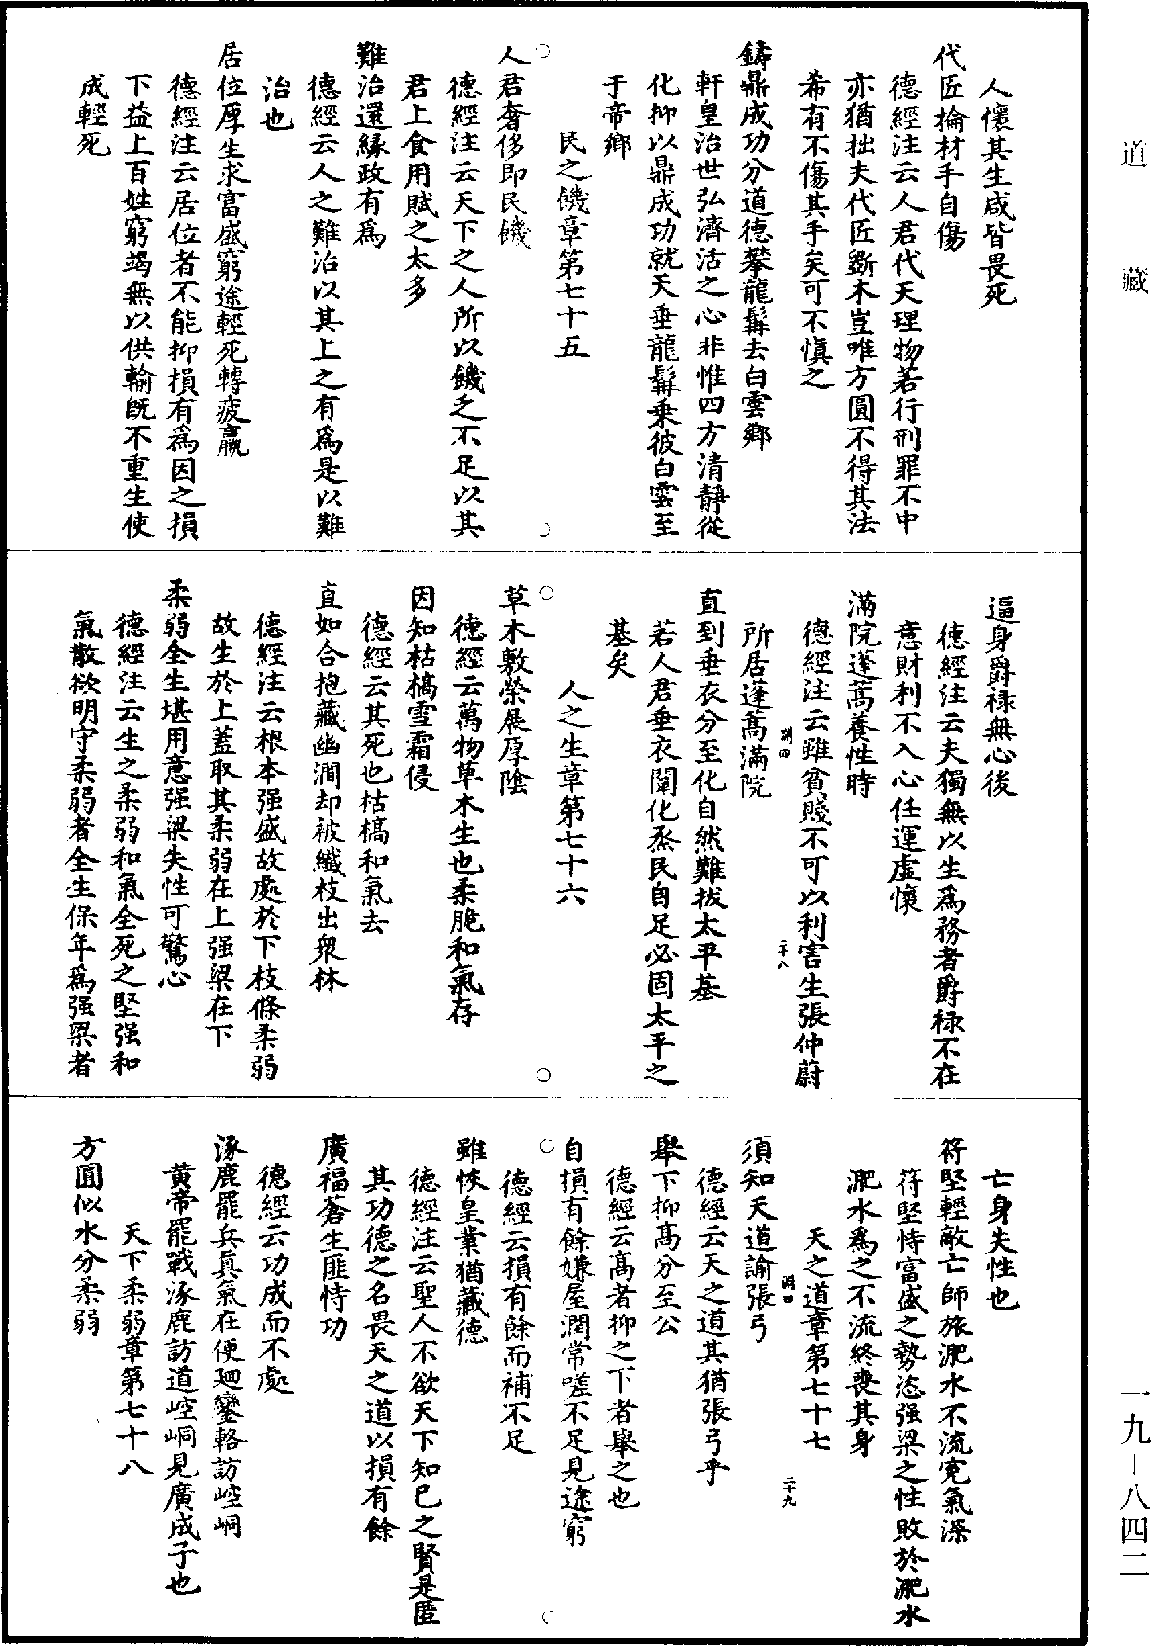 道藏
人懷其生咸皆畏死
代匠掄材手自傷
德經注云人君代天理物若行刑罪不中
亦猶拙夫代匠斲木豈唯方圓不得其法
希有不傷其手矣可不慎之
鑄鼎成功分道德攀龍髯去白雲鄉
軒皇治世弘濟活之心非惟四方清靜從
化抑以鼎成功就天垂龍髯乘彼白雲至
于帝鄉
民之饑章第七十五
人君奢侈即民饑
德經注云天下之人所以饑乏不足以其
君上食用賦之太多
難治還緣政有爲
德經云人之難治以其上之有爲是以難
治也
居位厚生求富盛窮途輕死轉疲羸
德經注云居位者不能抑損有爲因之損
下益上百姓窮竭無以供輸既不重生使
成輕死
逼身爵祿無心後
德經注云夫獨無以生爲務者爵祿不在
意財利不入心任運虛懷
滿院蓬蒿養性時
德經注云雖貧賤不可以利害生張仲蔚
所居蓬蒿滿院
直到垂衣分至化自然難拔太平基
若人君垂衣闡化烝民自足必固太平之
基矣
人之生章第七十六
草木敷榮展厚陰
德經云萬物草木生也柔脆和氣存
因知枯槁雪霜侵
德經云其死也枯槁和氣去
直如合抱藏幽澗却被纖枝出衆林
德經注云根本强盛故處於下枝條柔弱
故生於上蓋取其柔弱在上强梁在下
柔弱全生堪用意强梁失性可驚心
德經注云生之柔弱和氣全死之堅强和
氣散欲明守柔弱者全生保年爲强梁者
亡身失性也
符堅輕敵亡師旅淝水不流冤氣深
符堅恃富盛之勢恣强梁之性敗於淝水
淝水爲之不流終喪其身
天之道章第七十七
須知天道諭張弓
德經云天之道其猶張弓乎
舉下抑高分至公
德經云高者抑之下者舉之也
自損有餘嫌屋潤常嗟不足見途窮
德經云損有餘而補不足
雖恢皇業猶藏德
德經注云聖人不欲天下知已之賢是匿
其功德之名畏天之道以損有餘
廣福蒼生匪恃功
德經云功成而不處
涿鹿罷兵真氣在便廻鑾輅訪崆峒
黄帝罷戰涿鹿訪道崆峒見廣成子也
天下柔弱章第七十八
方圓似水分柔弱
二十八
二十九
一九—八四二